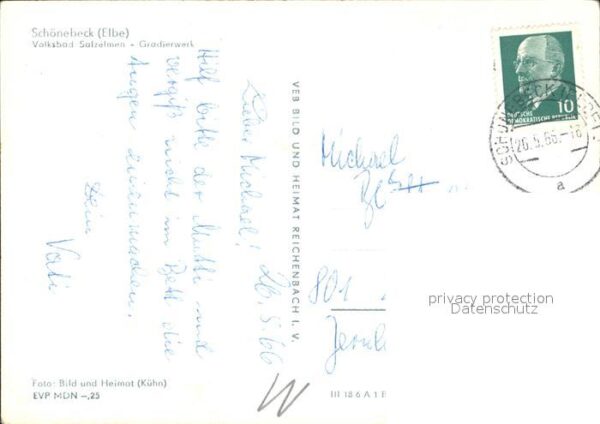 Schönebeck (Elbe)
Volksbad Salzelmen - Gradierwerk
26.5.66
Lieber Michael!
Hilf bitte der Mutti und
vergiß nicht im Bett die
Augen zuzumachen.
Dein
Vati
VEB BILD UND HEIMAT REICHENBACH I. V.
10
DEUTSCHE
DEMOKRATISCHE REPUBLIK
26.5.66.-18
a
Michael
801
privacy protection
Datenschutz
Foto: Bild und Heimat (Kühn)
EVP MDN -,25
III 18 6 A 1